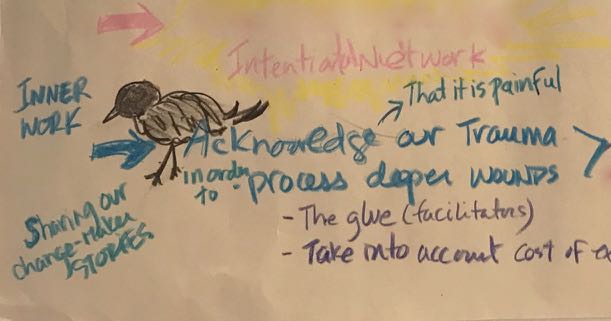 Intentional Network
INNER
WORK
That it is painful
Acknowledge our Trauma
in order
to process deeper wounds
Sharing our
change-maker
STORIES
- The glue (facilitators)
- Take into account cost of